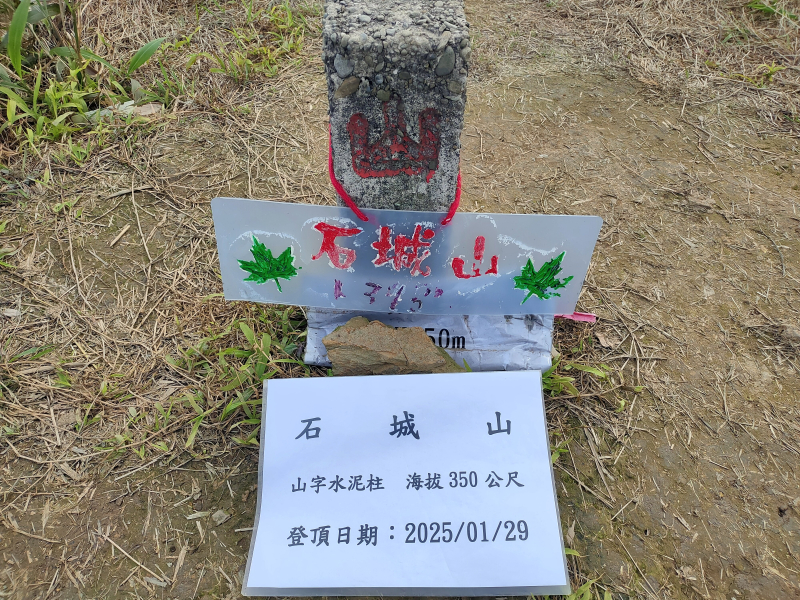 山
石城山
50m
石城山
山字水泥柱 海拔350公尺
登頂日期：2025/01/29